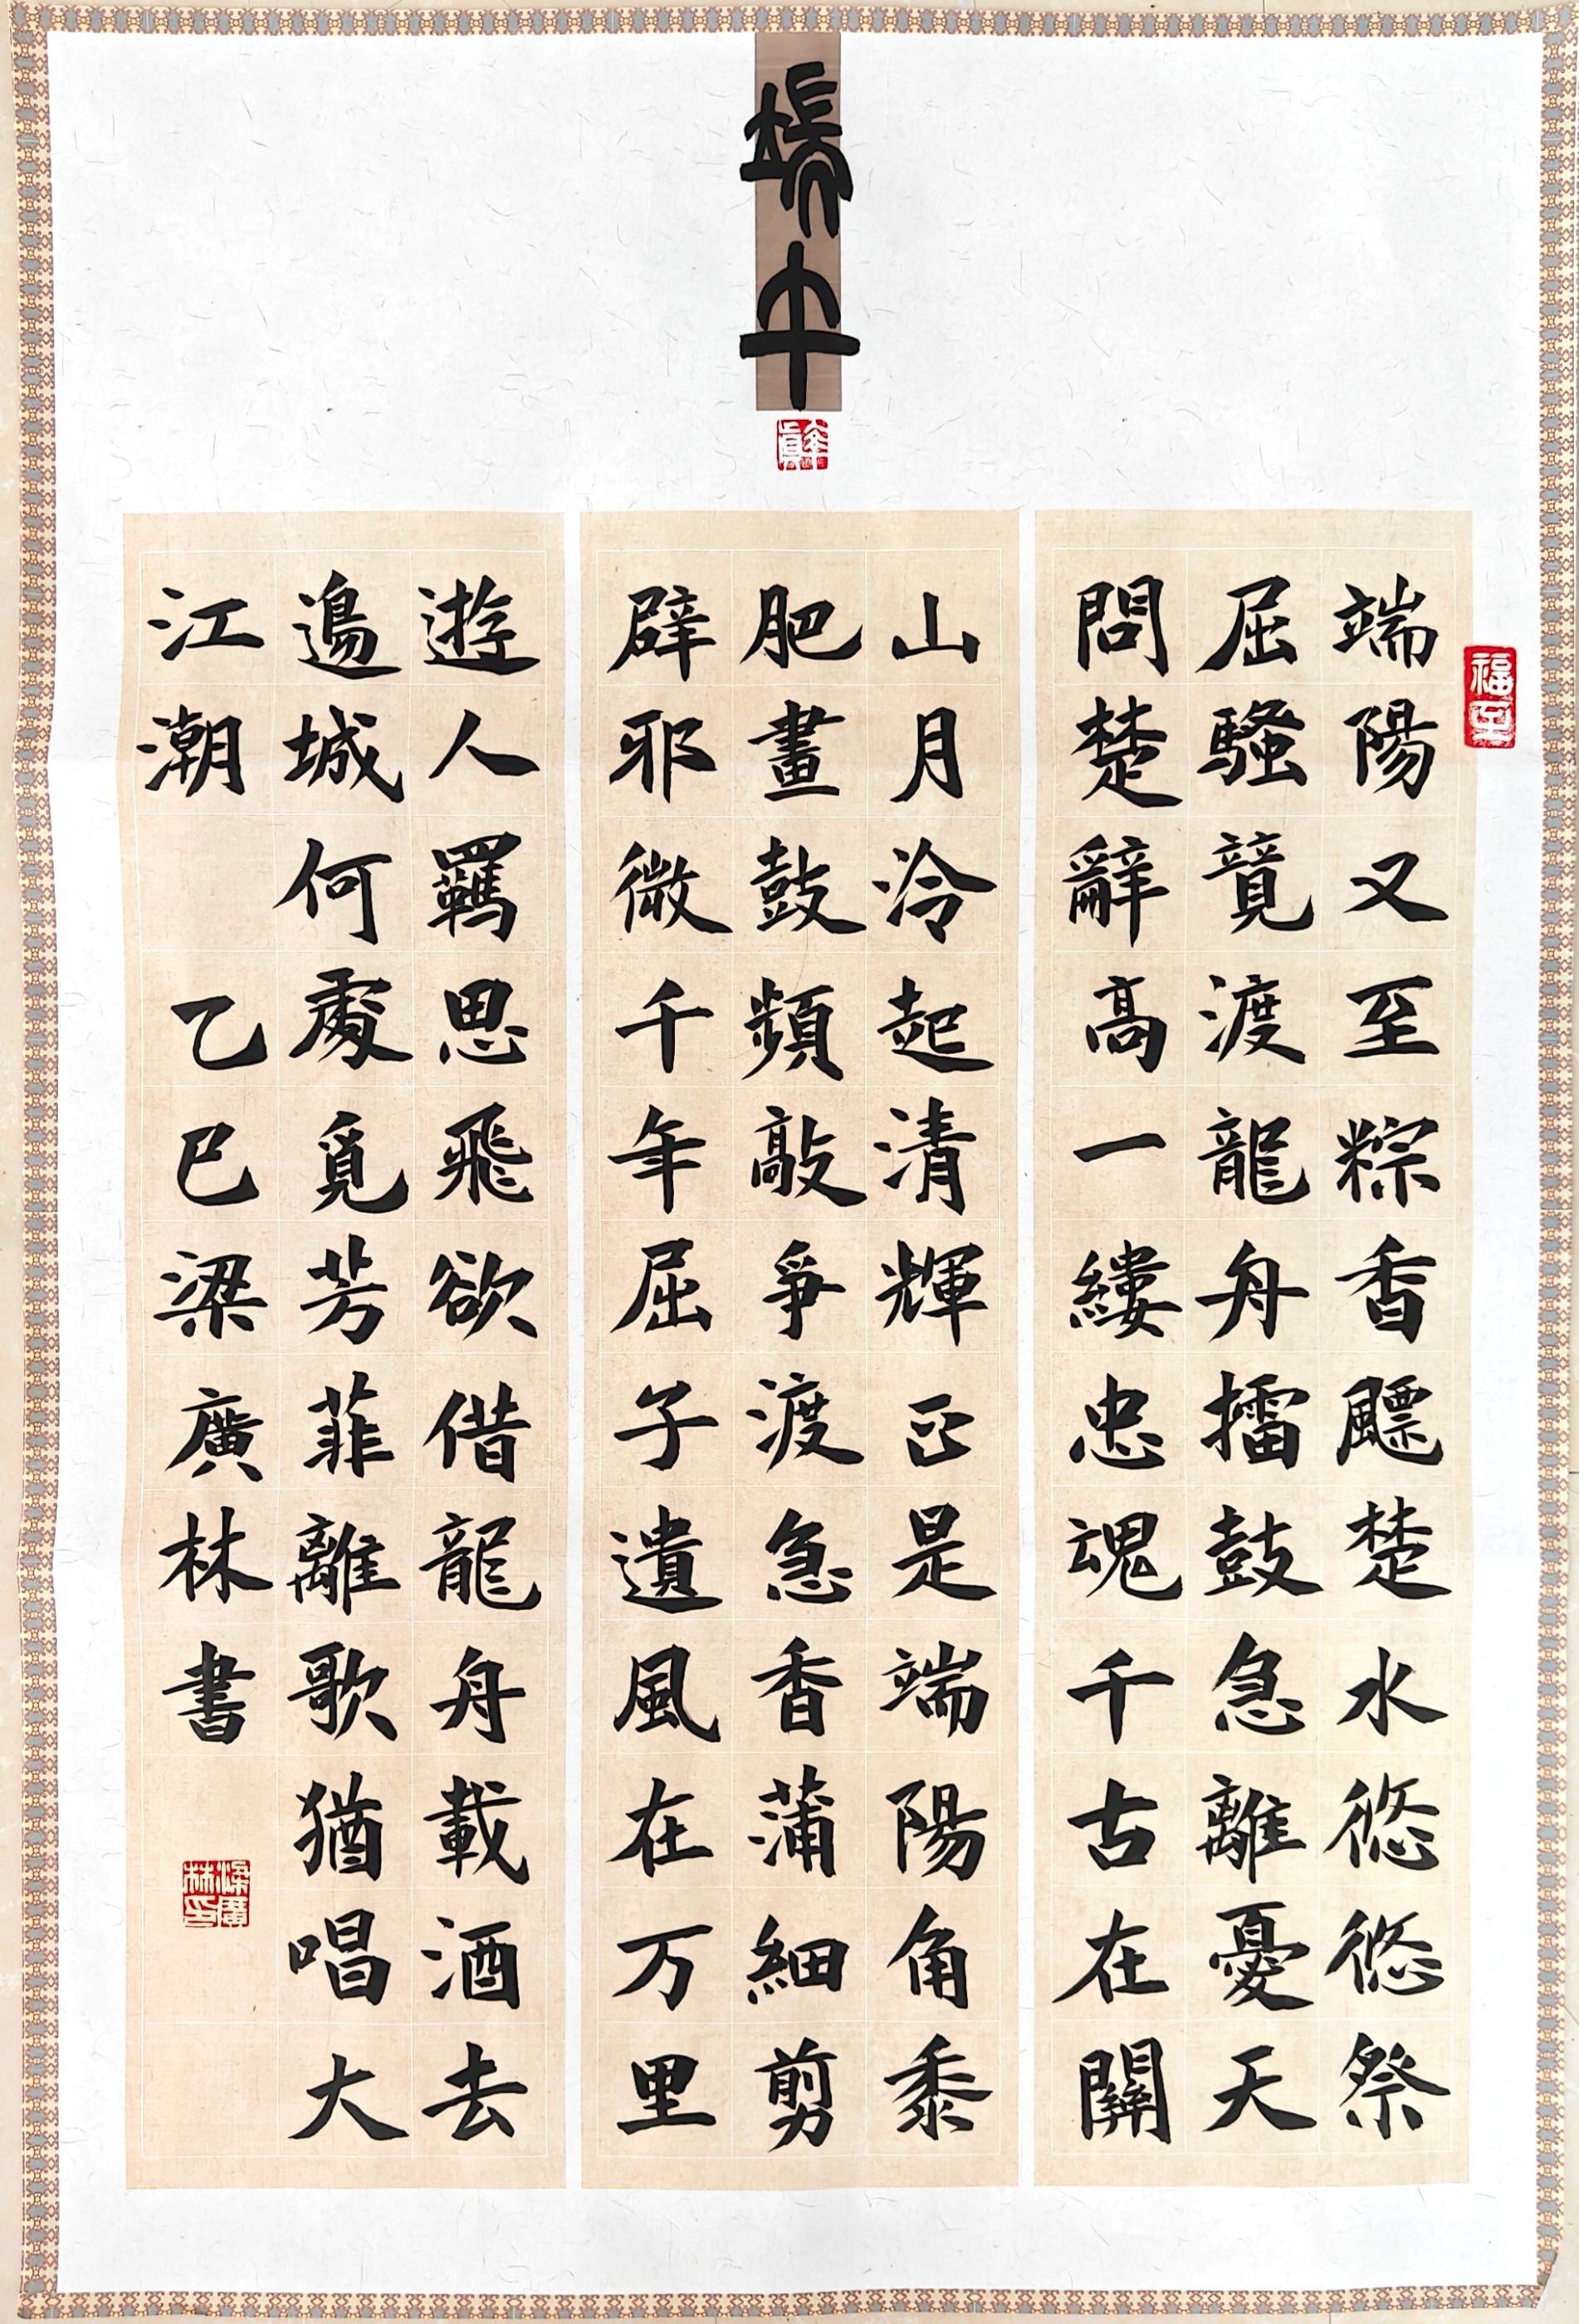 端午
率真
福至
端陽又至粽香飃楚水悠悠祭
屈騷竟渡龍舟擂鼓急離憂天
問楚辭高一縷忠魂千古在關
山月泠起清輝正是端陽角黍
肥畫鼓頻敲爭渡急香蒲細剪
辟邪微千年屈子遺風在万里
遊人羈思飛欲借龍舟載酒去
邊城何處覓芳菲離歌猶唱大
江潮 乙巳梁廣林書
梁廣林印